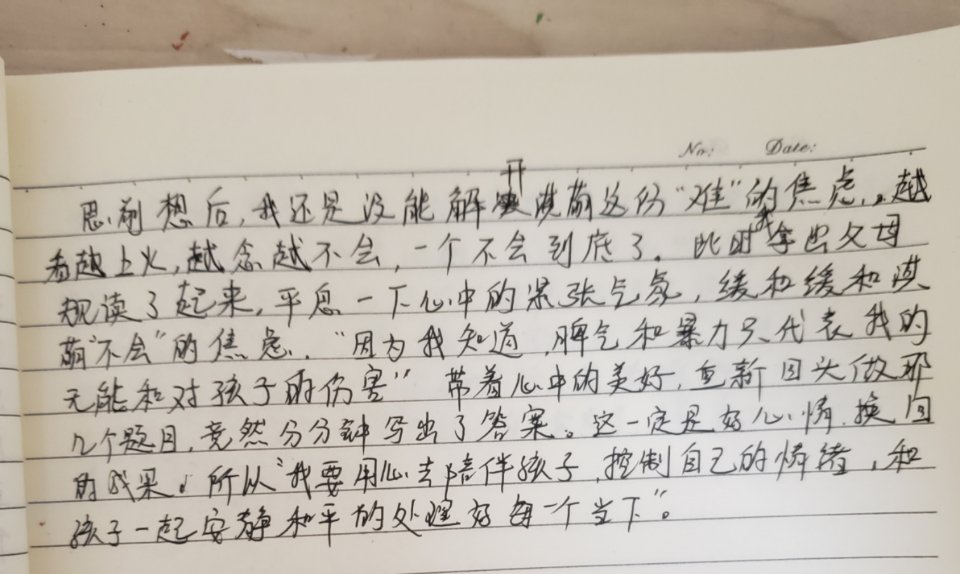 No: Date:
思前想后,我还是没能解开淇萌这份“难”的焦虑,越
看越上火,越念越不会,一个不会到底了。此时我拿出父母
规读了起来,平息一下心中的紧张气氛,缓和缓和淇
萌“不会”的焦虑,“因为我知道,脾气和暴力只代表我的
无能和对孩子的伤害”带着心中的美好,重新回头做那
几个题目,竟然分分钟写出了答案。这一定是好心情换回
的成果。所以“我要用心去陪伴孩子,控制自己的情绪,和
孩子一起安静和平的处理好每一个当下”。